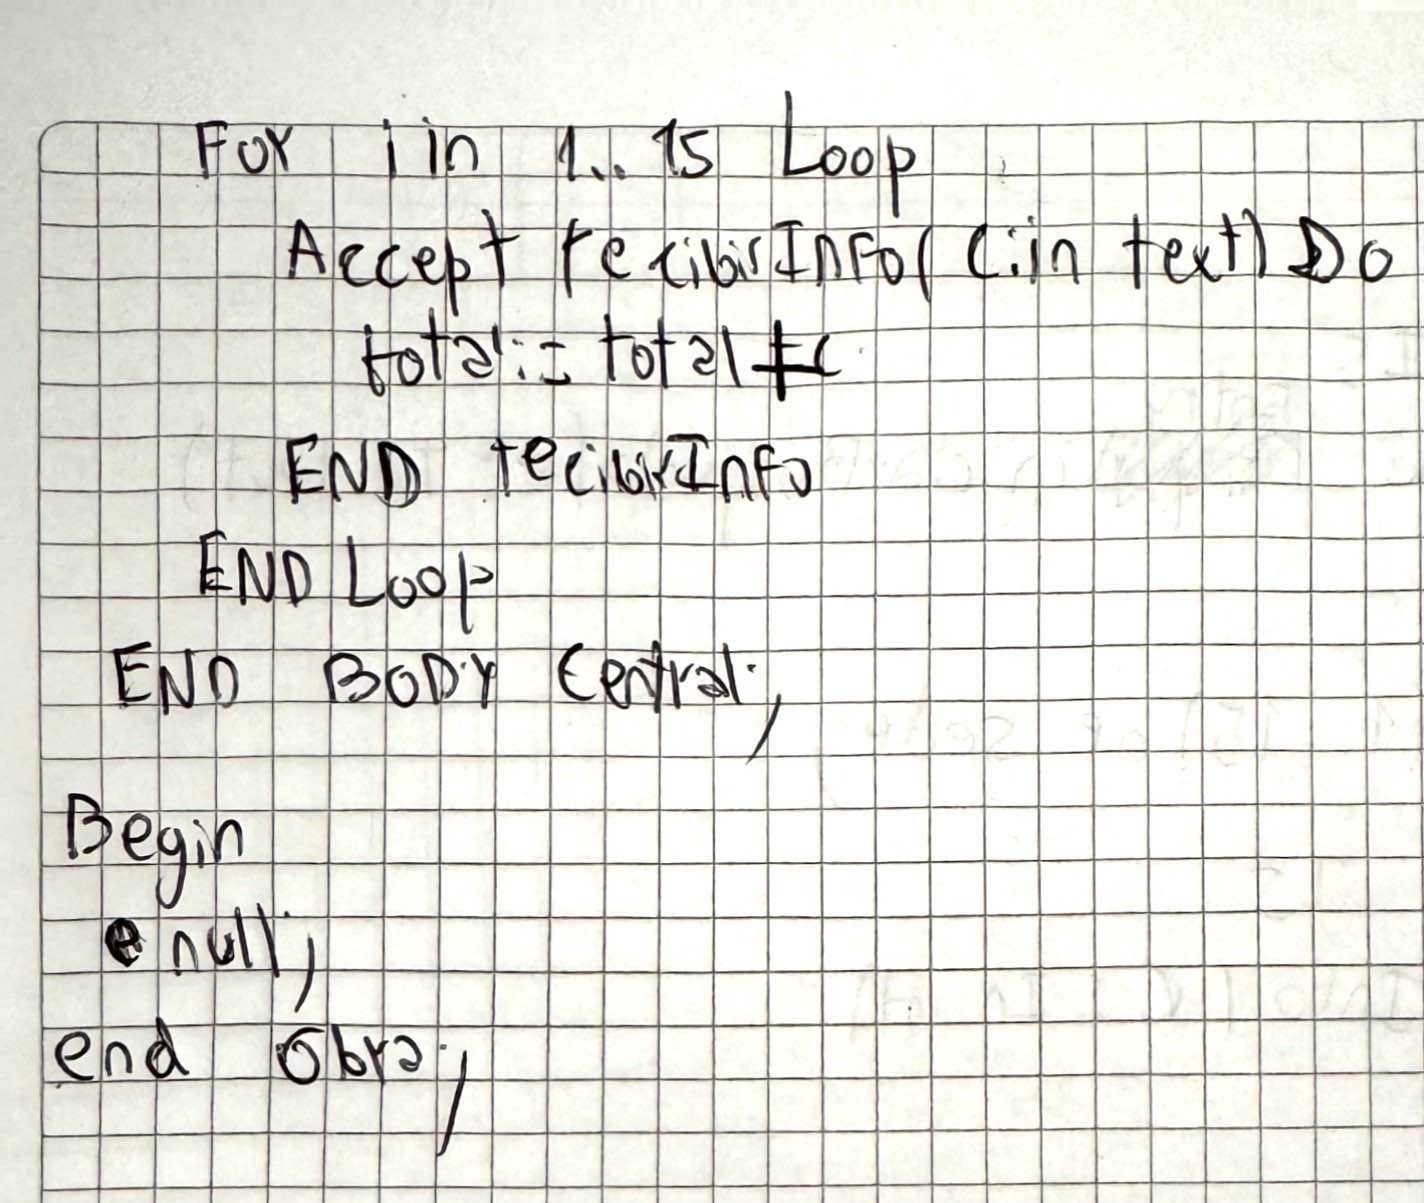 For i in 1..15 Loop
Accept recibirInfo( C:in text) Do
total:= total +c
END recibirInfo
END Loop
END BODY Central;
Begin
null;
end Obra;